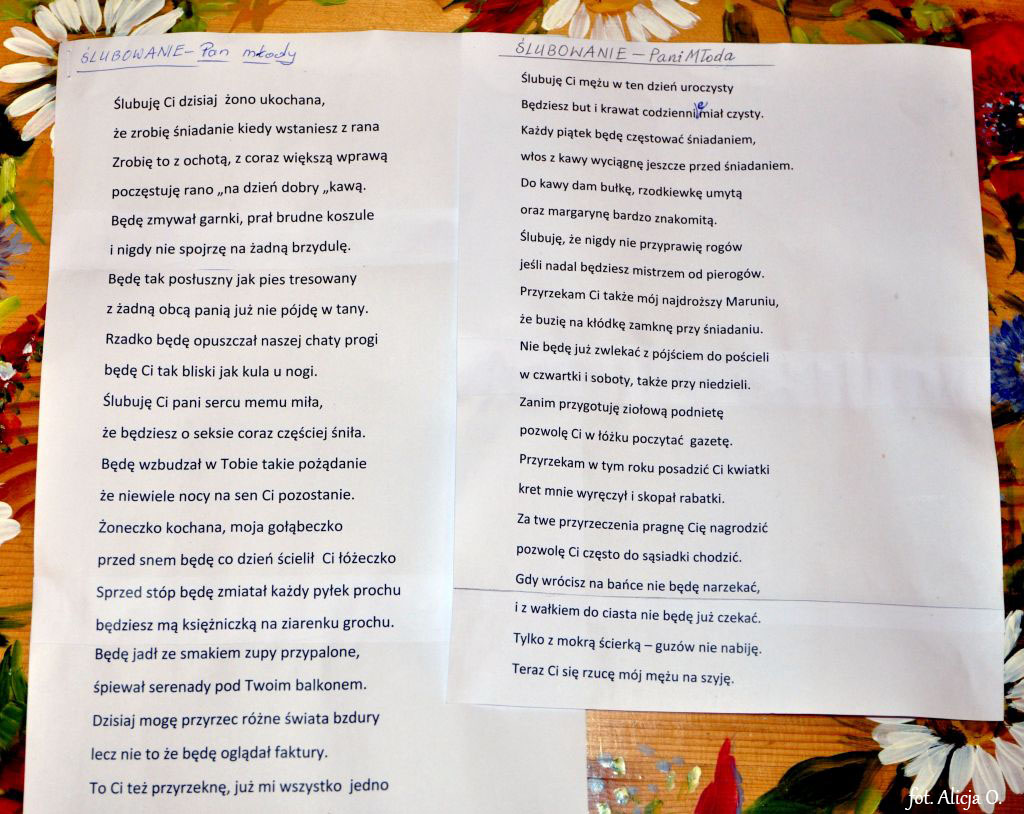 ŚLUBOWANIE – Pan młody
Ślubuję Ci dzisiaj żono ukochana,
że zrobię śniadanie kiedy wstaniesz z rana
Zrobię to z ochotą, z coraz większą wprawą
poczęstuję rano „na dzień dobry „kawą.
Będę zmywał garnki, prał brudne koszule
i nigdy nie spojrzę na żadną brzydulę.
Będę tak posłuszny jak pies tresowany
z żadną obcą panią już nie pójdę w tany.
Rzadko będę opuszczał naszej chaty progi
będę Ci tak bliski jak kula u nogi.
Ślubuję Ci pani sercu memu miła,
że będziesz o seksie coraz częściej śniła.
Będę wzbudzał w Tobie takie pożądanie
że niewiele nocy na sen Ci pozostanie.
Żoneczko kochana, moja gołąbeczko
przed snem będę co dzień ścielił Ci łóżeczko
Sprzed stóp będę zmiatał każdy pyłek prochu
będziesz mą księżniczką na ziarenku grochu.
Będę jadł ze smakiem zupy przypalone,
śpiewał serenady pod Twoim balkonem.
Dzisiaj mogę przyrzec różne świata bzdury
lecz nie to że będę oglądał faktury.
To Ci też przyrzeknę, już mi wszystko jedno
ŚLUBOWANIE – Pani Młoda
Ślubuję Ci mężu w ten dzień uroczysty
Będziesz but i krawat codziennie miał czysty.
Każdy piątek będę częstować śniadaniem,
włos z kawy wyciągnę jeszcze przed śniadaniem.
Do kawy dam bułkę, rzodkiewkę umytą
oraz margarynę bardzo znakomitą.
Ślubuję, że nigdy nie przyprawię rogów
jeśli nadal będziesz mistrzem od pierogów.
Przyrzekam Ci także mój najdroższy Maruniu,
że buzię na kłódkę zamknę przy śniadaniu.
Nie będę już zwlekać z pójściem do pościeli
w czwartki i soboty, także przy niedzieli.
Zanim przygotuję ziołową podnietę
pozwolę Ci w łóżku poczytać gazetę.
Przyrzekam w tym roku posadzić Ci kwiatki
kret mnie wyręczył i skopał rabatki.
Za twe przyrzeczenia pragnę Cię nagrodzić
pozwolę Ci często do sąsiadki chodzić.
Gdy wrócisz na bańce nie będę narzekać,
i z wałkiem do ciasta nie będę już czekać.
Tylko z mokrą ścierką – guzów nie nabiję.
Teraz Ci się rzucę mój mężu na szyję.
fot. Alicja O.